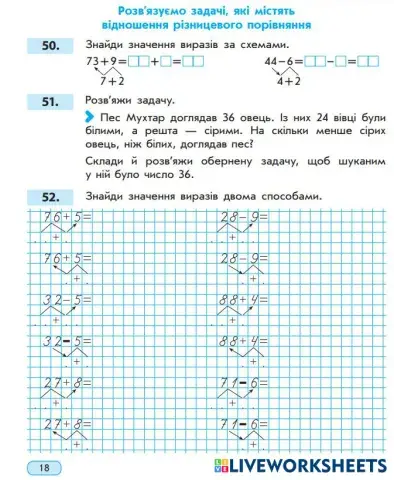 Розв'язуємо задачі, які містять
відношення різницевого порівняння
50. Знайди значення виразів за схемами.
73+9=□□+□=□□ 44-6=□□-□=□□
7+2 4+2
51. Розв'яжи задачу.
Пес Мухтар доглядав 36 овець. Із них 24 вівці були
білими, а решта — сірими. На скільки менше сірих
овець, ніж білих, доглядав пес?
Склади й розв'яжи обернену задачу, щоб шуканим
у ній було число 36.
52. Знайди значення виразів двома способами.
76+5= 28-9=
. + . . + .
76+5= 28-9=
. + . . + .
32-5= 88+4=
. + . . + .
32-5= 88+4=
. + . . + .
27+8= 71-6=
. + . . + .
27+8= 71-6=
. + . . + .
18
LIVEWORKSHEETS